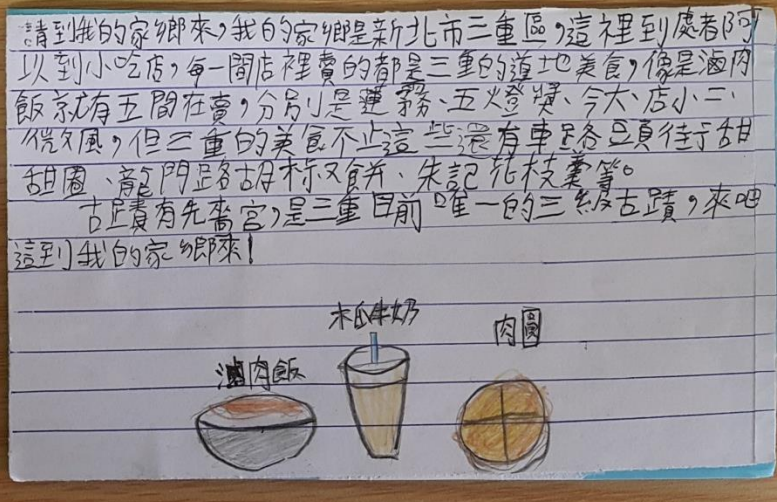 請到我的家鄉來,我的家鄉是新北市三重區,這裡到處都可
以到小吃店,每一間店裡賣的都是三重的道地美食,像是滷肉
飯就有五間在賣,分別是 霧、五燈獎、今大、店小二、
俬文風,但三重的美食不止這些還有車路頭 甜
甜圈、龍門路胡椒餅、朱記花枝羹等。
古蹟有先嗇宮,是三重目前唯一的三級古蹟,來吧
請到我的家鄉來!
木瓜牛奶
肉圓
滷肉飯